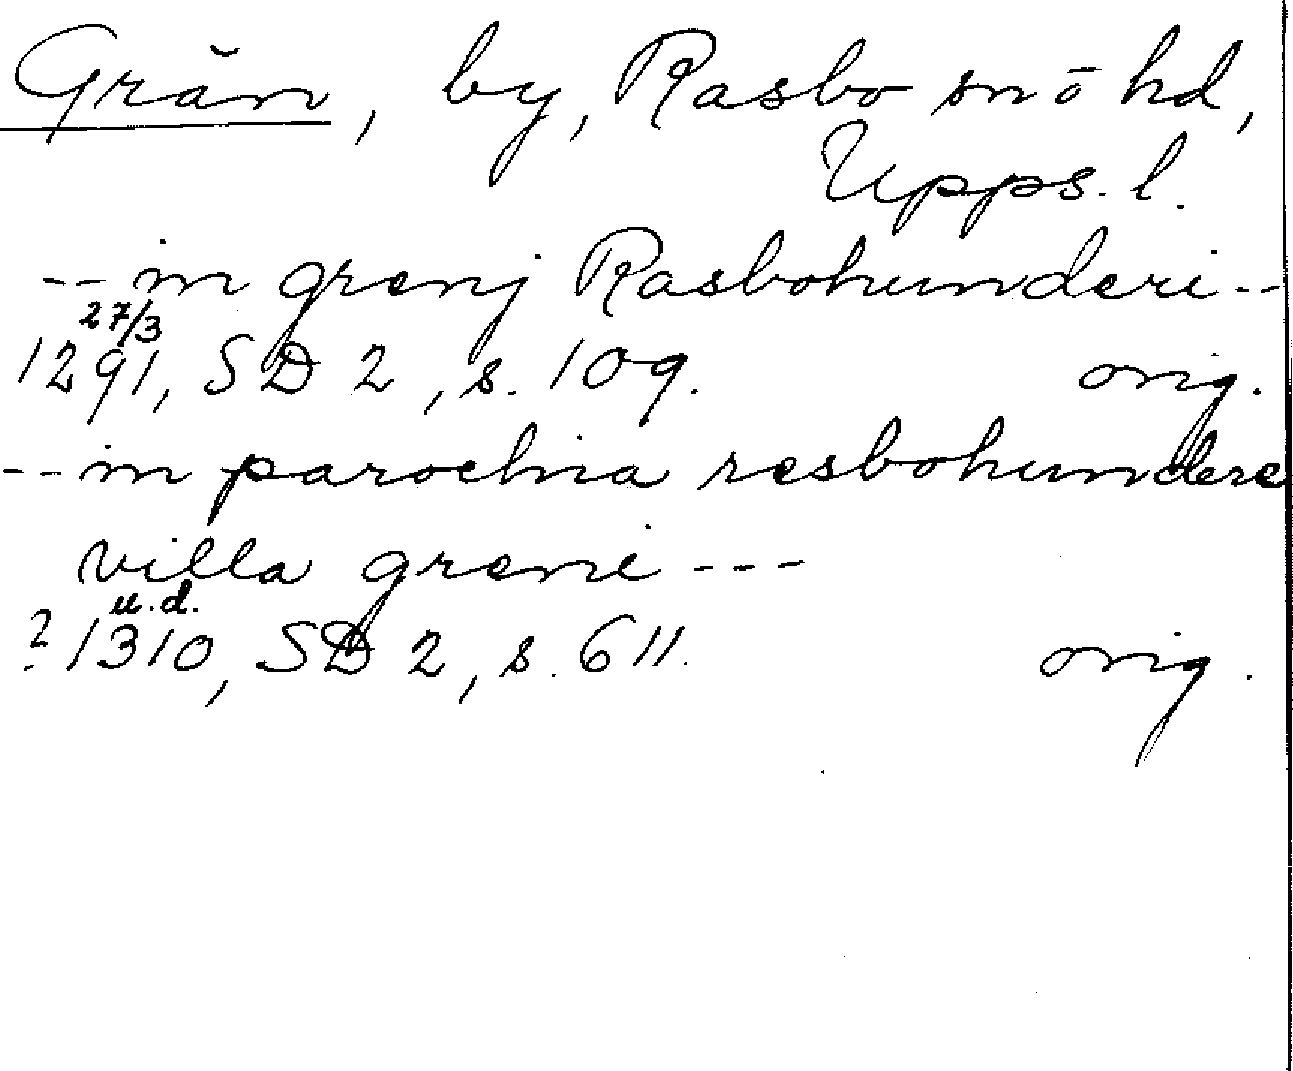 Grän, by, Rasbo sn o hd,
Upps. l.
-- in grenj Rasbohunderi --
27/3
1291, SD 2, s. 109. orig.
-- in parochia resbohundere
villa greni ---
u.d.
? 1310, SD 2, s. 611. orig.